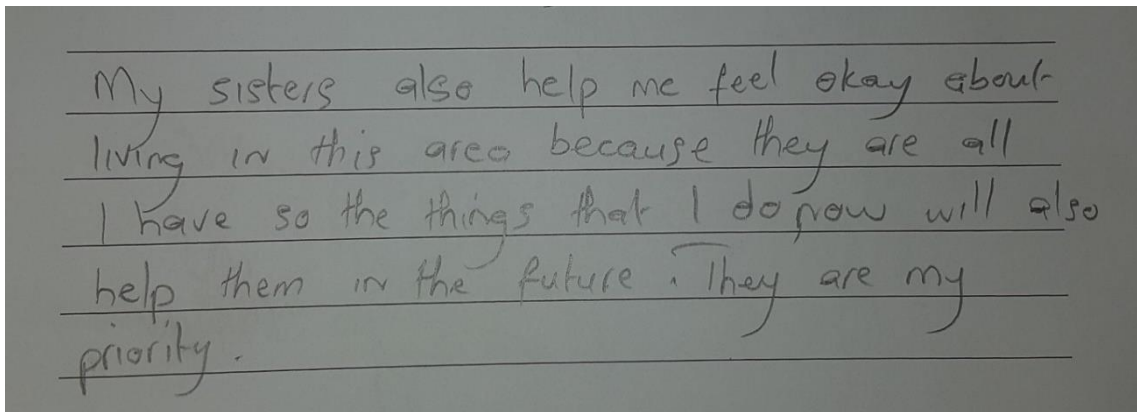 My sisters also help me feel okay about
living in this area because they are all
I have so the things that I do now will also
help them in the future. They are my
priority.